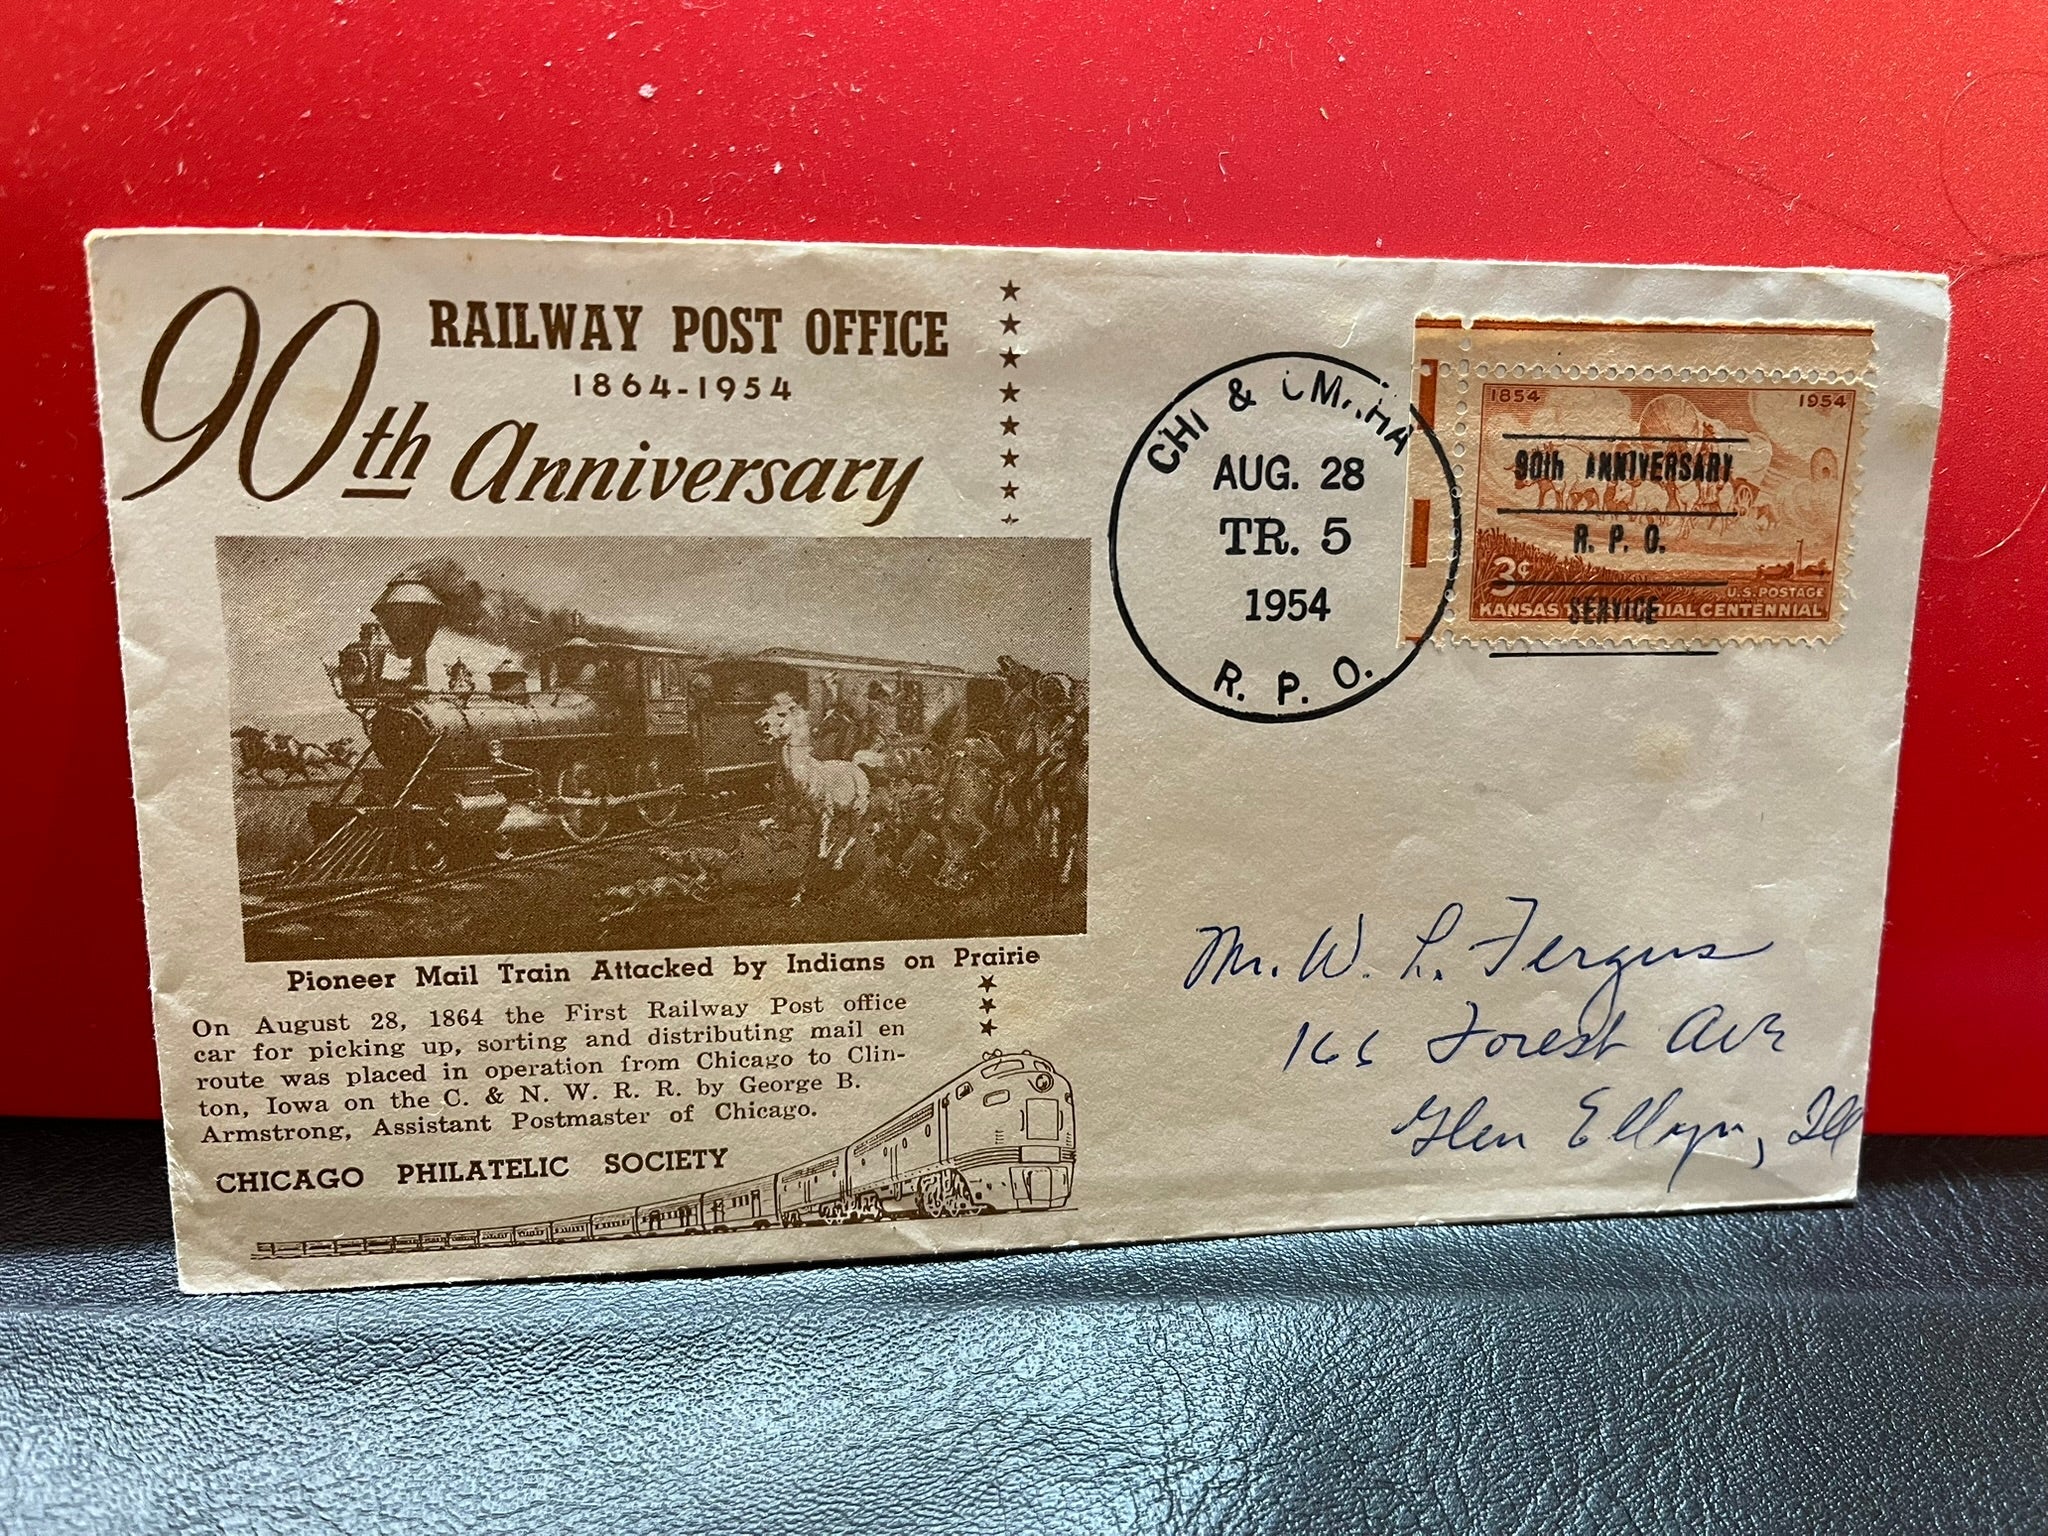 RAILWAY POST OFFICE
1864-1954
90th Anniversary
Pioneer Mail Train Attacked by Indians on Prairie
On August 28, 1864 the First Railway Post office
car for picking up, sorting and distributing mail en
route was placed in operation from Chicago to Clin-
ton, Iowa on the C. & N. W. R. R. by George B.
Armstrong, Assistant Postmaster of Chicago.
CHICAGO PHILATELIC SOCIETY
CHI & OMAHA
AUG. 28
TR. 5
1954
R. P. O.
1854 1954
90th ANNIVERSARY
R. P. O.
SERVICE
3¢
U.S. POSTAGE
KANSAS TERRITORIAL CENTENNIAL
Mr. W. L. Fergus
166 Forest Ave
Glen Ellyn, Ill